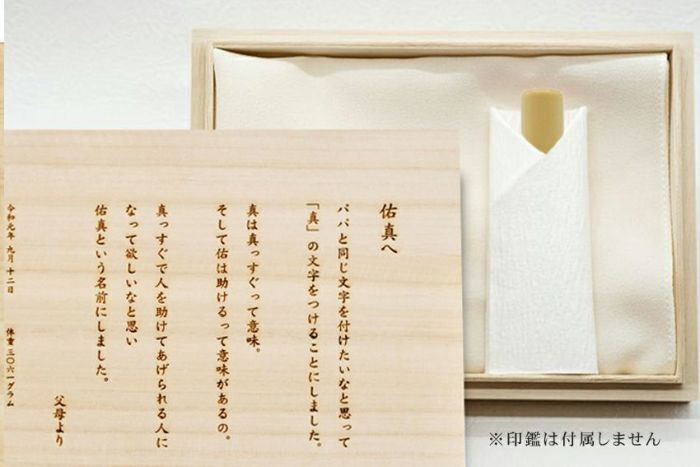 佑真へ
パパと同じ文字を付けたいなと思って
「真」の文字をつけることにしました。
真は真っすぐって意味。
そして佑は助けるって意味があるの。
真っすぐで人を助けてあげられる人に
なって欲しいなと思い
佑真という名前にしました。
父母より
令和元年 九月 十二日 体重 三〇六一グラム
※印鑑は付属しません